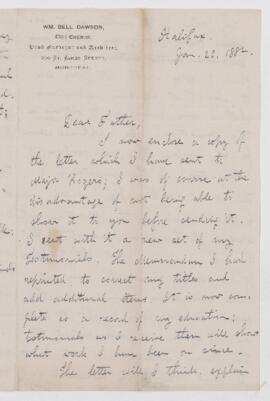 WM. BELL DAWSON,
Civil Engineer,
Land Surveyor and Architect,
St. James Street,
MONTREAL.
Halifax,
Jan. 22, 1882.
Dear Father,
I now enclose a copy of
the letter which I have sent to
Major Rogers; I was of course at the
disadvantage of not being able to
show it to you before sending it.
I sent with it a new set of my
Testimonials. The Memorandum I had
reprinted to correct my titles and
add additional items. It is now com-
plete as a record of my education;
testimonials as I receive them will show
what work I have been on since.
The letter will I think, explain